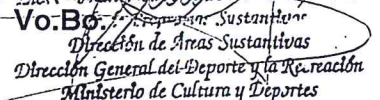 Vo.Bo.
Sustantivas
Dirección de Áreas Sustantivas
Dirección General del Deporte y la Recreación
Ministerio de Cultura y Deportes